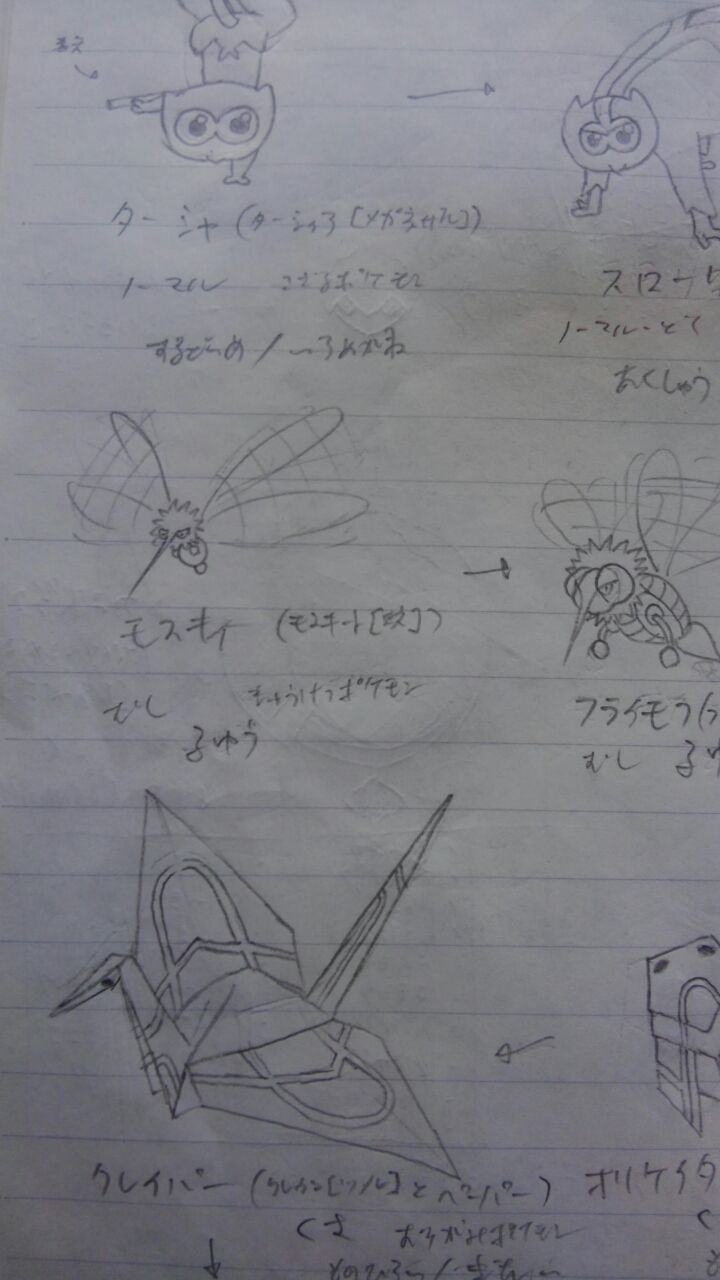 ターシャ(ターシャ[メガネザル])
ノーマル こざるポケモン
するどいめ/いろめがね
スロー
ノーマル・どく
あくしゅう
モスキィ(モスキート[蚊])
むし きゅうけつポケモン
ふゆう
フライモラ(
むし ふゆ
クレイパー(クレイン[ツル]とペーパー)
くさ おりがみポケモン
オリケイタ
く